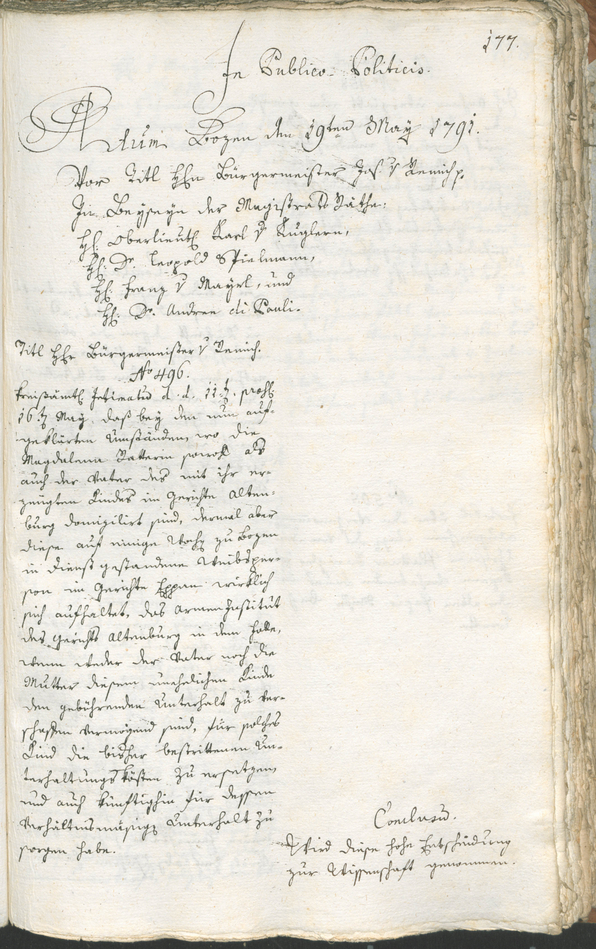 177.
In Publico-Politicis.
Actum Bozen den 19ten May 1791.
Vor Titl Hhn Bürgermeister Jos: v Remich p.
In Beyseyn der Magistrats Räthe:
Hl. Oberlieut: Karl v Kuglern,
Hl. Dr. Leopold Spielmann,
Hl. Franz v Mayrl, und
Hl. Dr. Andree di Pauli.
Titl Hhr Bürgermeister v Remich.
No 496.
Kreisämtl Intimatum d. d. 11t.
16t May, daß bey den nun auf-
geklärten Umständen, wo die
Magdalena Patterin sowohl als
auch der Vater des mit ihr er-
zeugten Kindes im Gerichte Alten-
burg domizilirt sind, dermal aber
diese auf einige zu Bozen
in Dienst gestandene Weibsper-
son im Gerichte Eppan wirklich
sich aufhaltet, das Armen Institut
des Gerichts Altenburg in dem Falle,
wenn weder der Vater noch die
Mutter diesem unehelichen Kinde
den gebührenden Unterhalt zu ver-
schaffen vermögend sind, für solches
Kind die bisher bestrittenen Un-
terhaltungskösten zu ersetzen,
und auch künftighin für dessen
Verhältnismäsigen Unterhalt zu
sorgen habe.
Conclusum.
Wird diese hohe Entscheidung
zur Wissenschaft genommen.